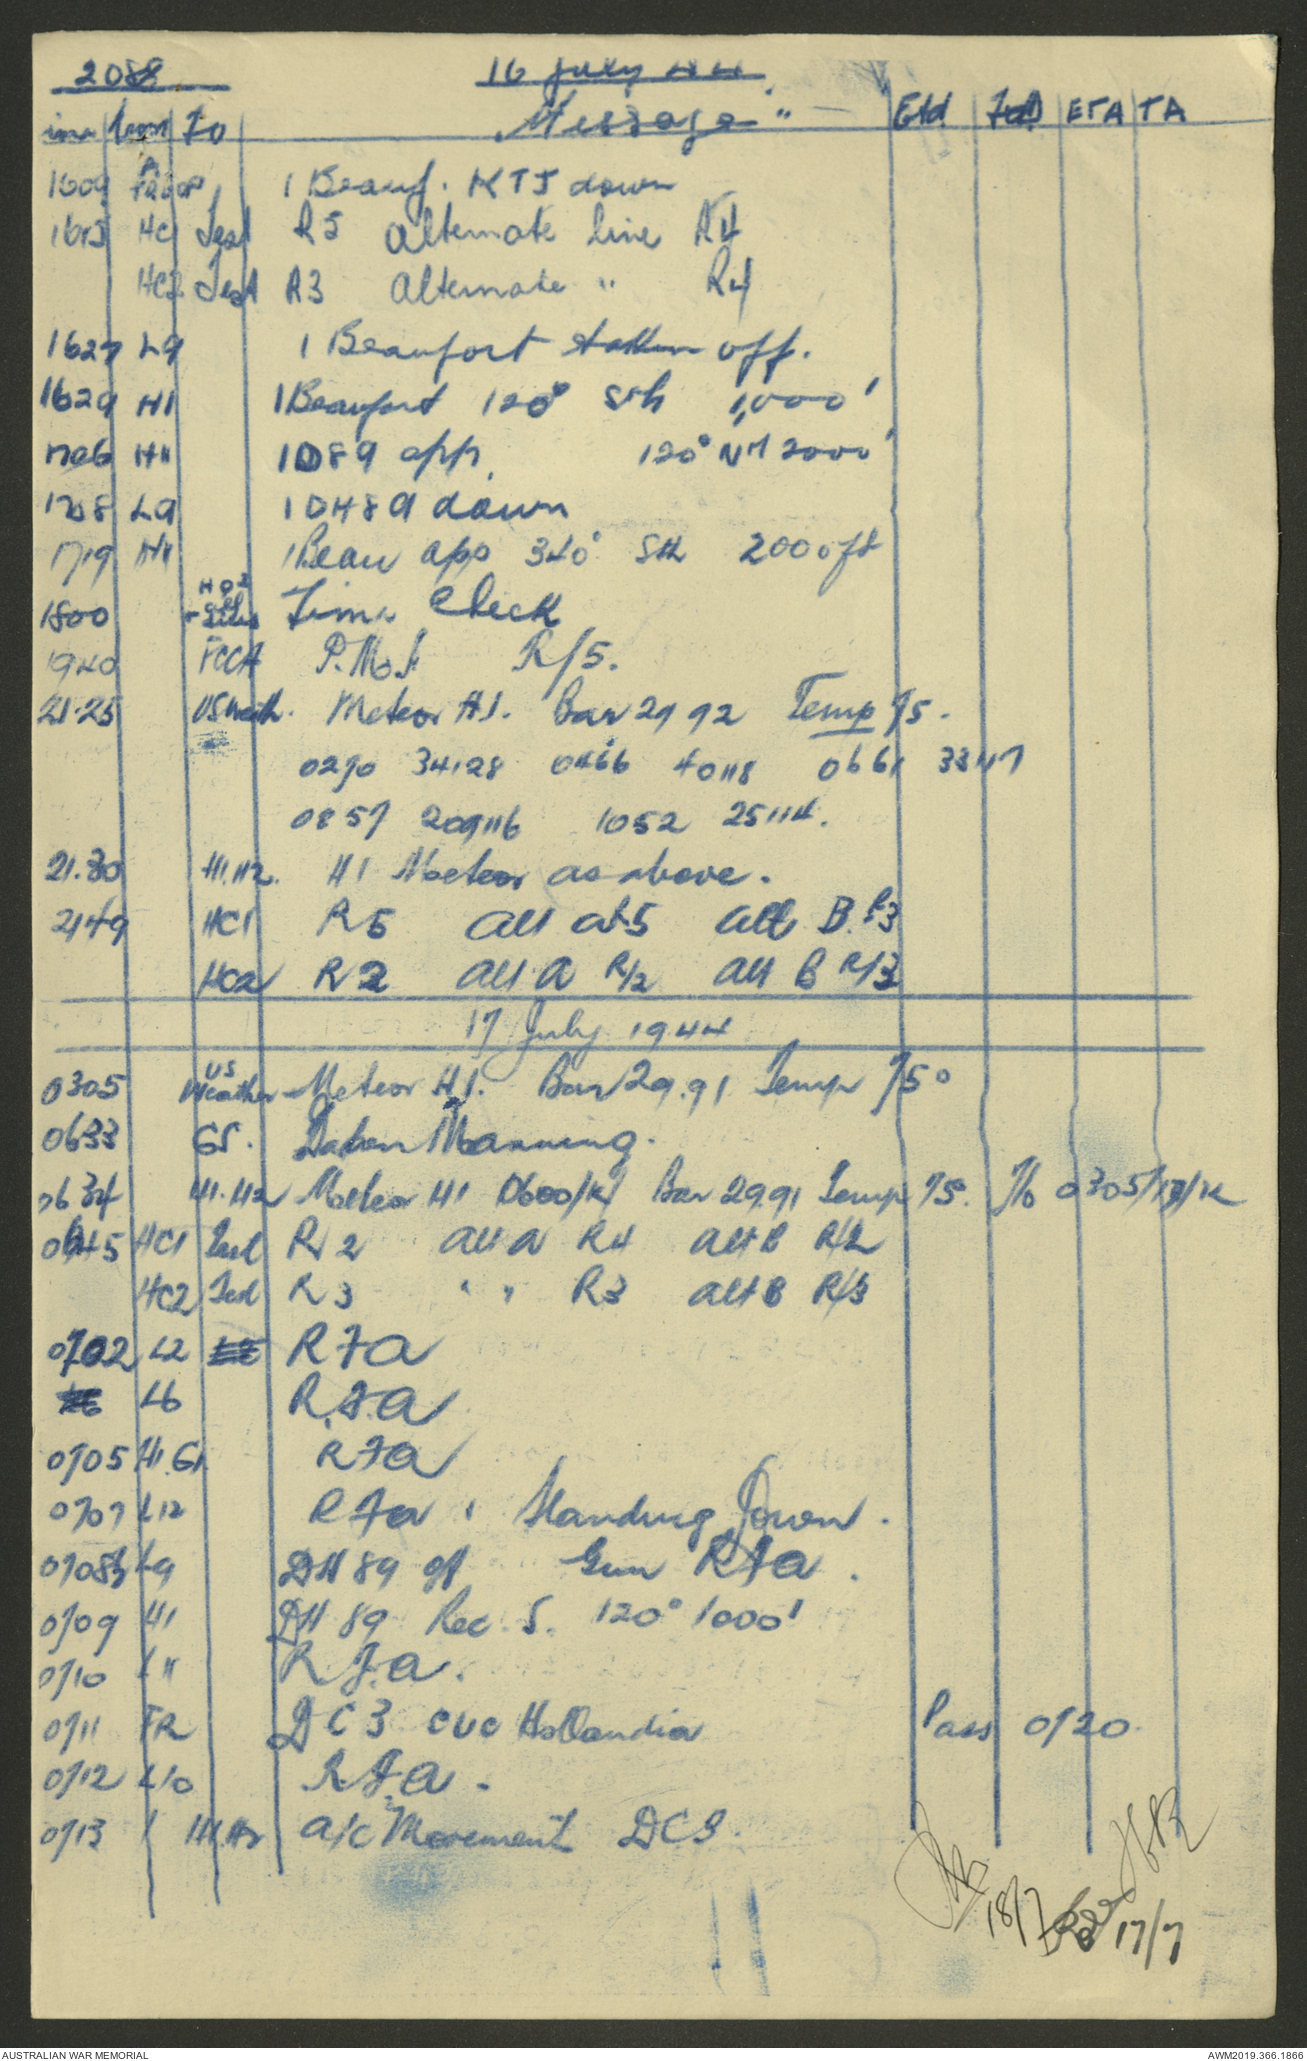 2088 16 July 44
Time From To "Message" Etd ETA TA
1609 1 Beauf. KTJ down
1613 HC1 Test R5 Alternate line R4
HC2 Test R3 Alternate " R4
1627 L9 1 Beaufort taken off.
1629 H1 1 Beaufort 120° Sth 1,000'
1706 H11 1 D89 app. 120° 2000'
1708 L9 1 DH89 down
1719 H11 1 Beau app 340° Sth 2000ft
1800 Time Check
1940 FCCA R/5.
21.25 US Weath. Meteor H1. Bar 29 92 Temp 75.
0290 34128 0466 40118 0661 33117
0857 209116 1052 25114.
21.30 H1.H2. H1 Meteor as above.
2149 HC1 R5 alt a R5 alt B R3
HC2 R2 alt A R/2 alt B R/3
17 July 1944
0305 US Weather Meteor H1. Bar 29.91 Temp 75°
0633 GS. Manning.
0634 H1.H2 Meteor H1 0600/K/ Bar 29.91 Temp 75. 0305/17/K
0645 HC1 Test R2 alt A R4 alt B R/2
HC2 Test R3 " " R3 alt B R/3
0702 L2 R7A
L6 R.7.A
0705 H1.G1. R7A
0707 L12 R7A Standing Down.
0708½ L9 DH89 off Gun R7A.
0709 H1 DH89 Rec. S. 120° 1000'
0710 L11 R7A.
0711 FR DC3 Hollandia Pass 0720.
0712 L10 R7A.
0713 a/c Movement DC3.
18/7 17/7
AUSTRALIAN WAR MEMORIAL AWM2019.366.1866